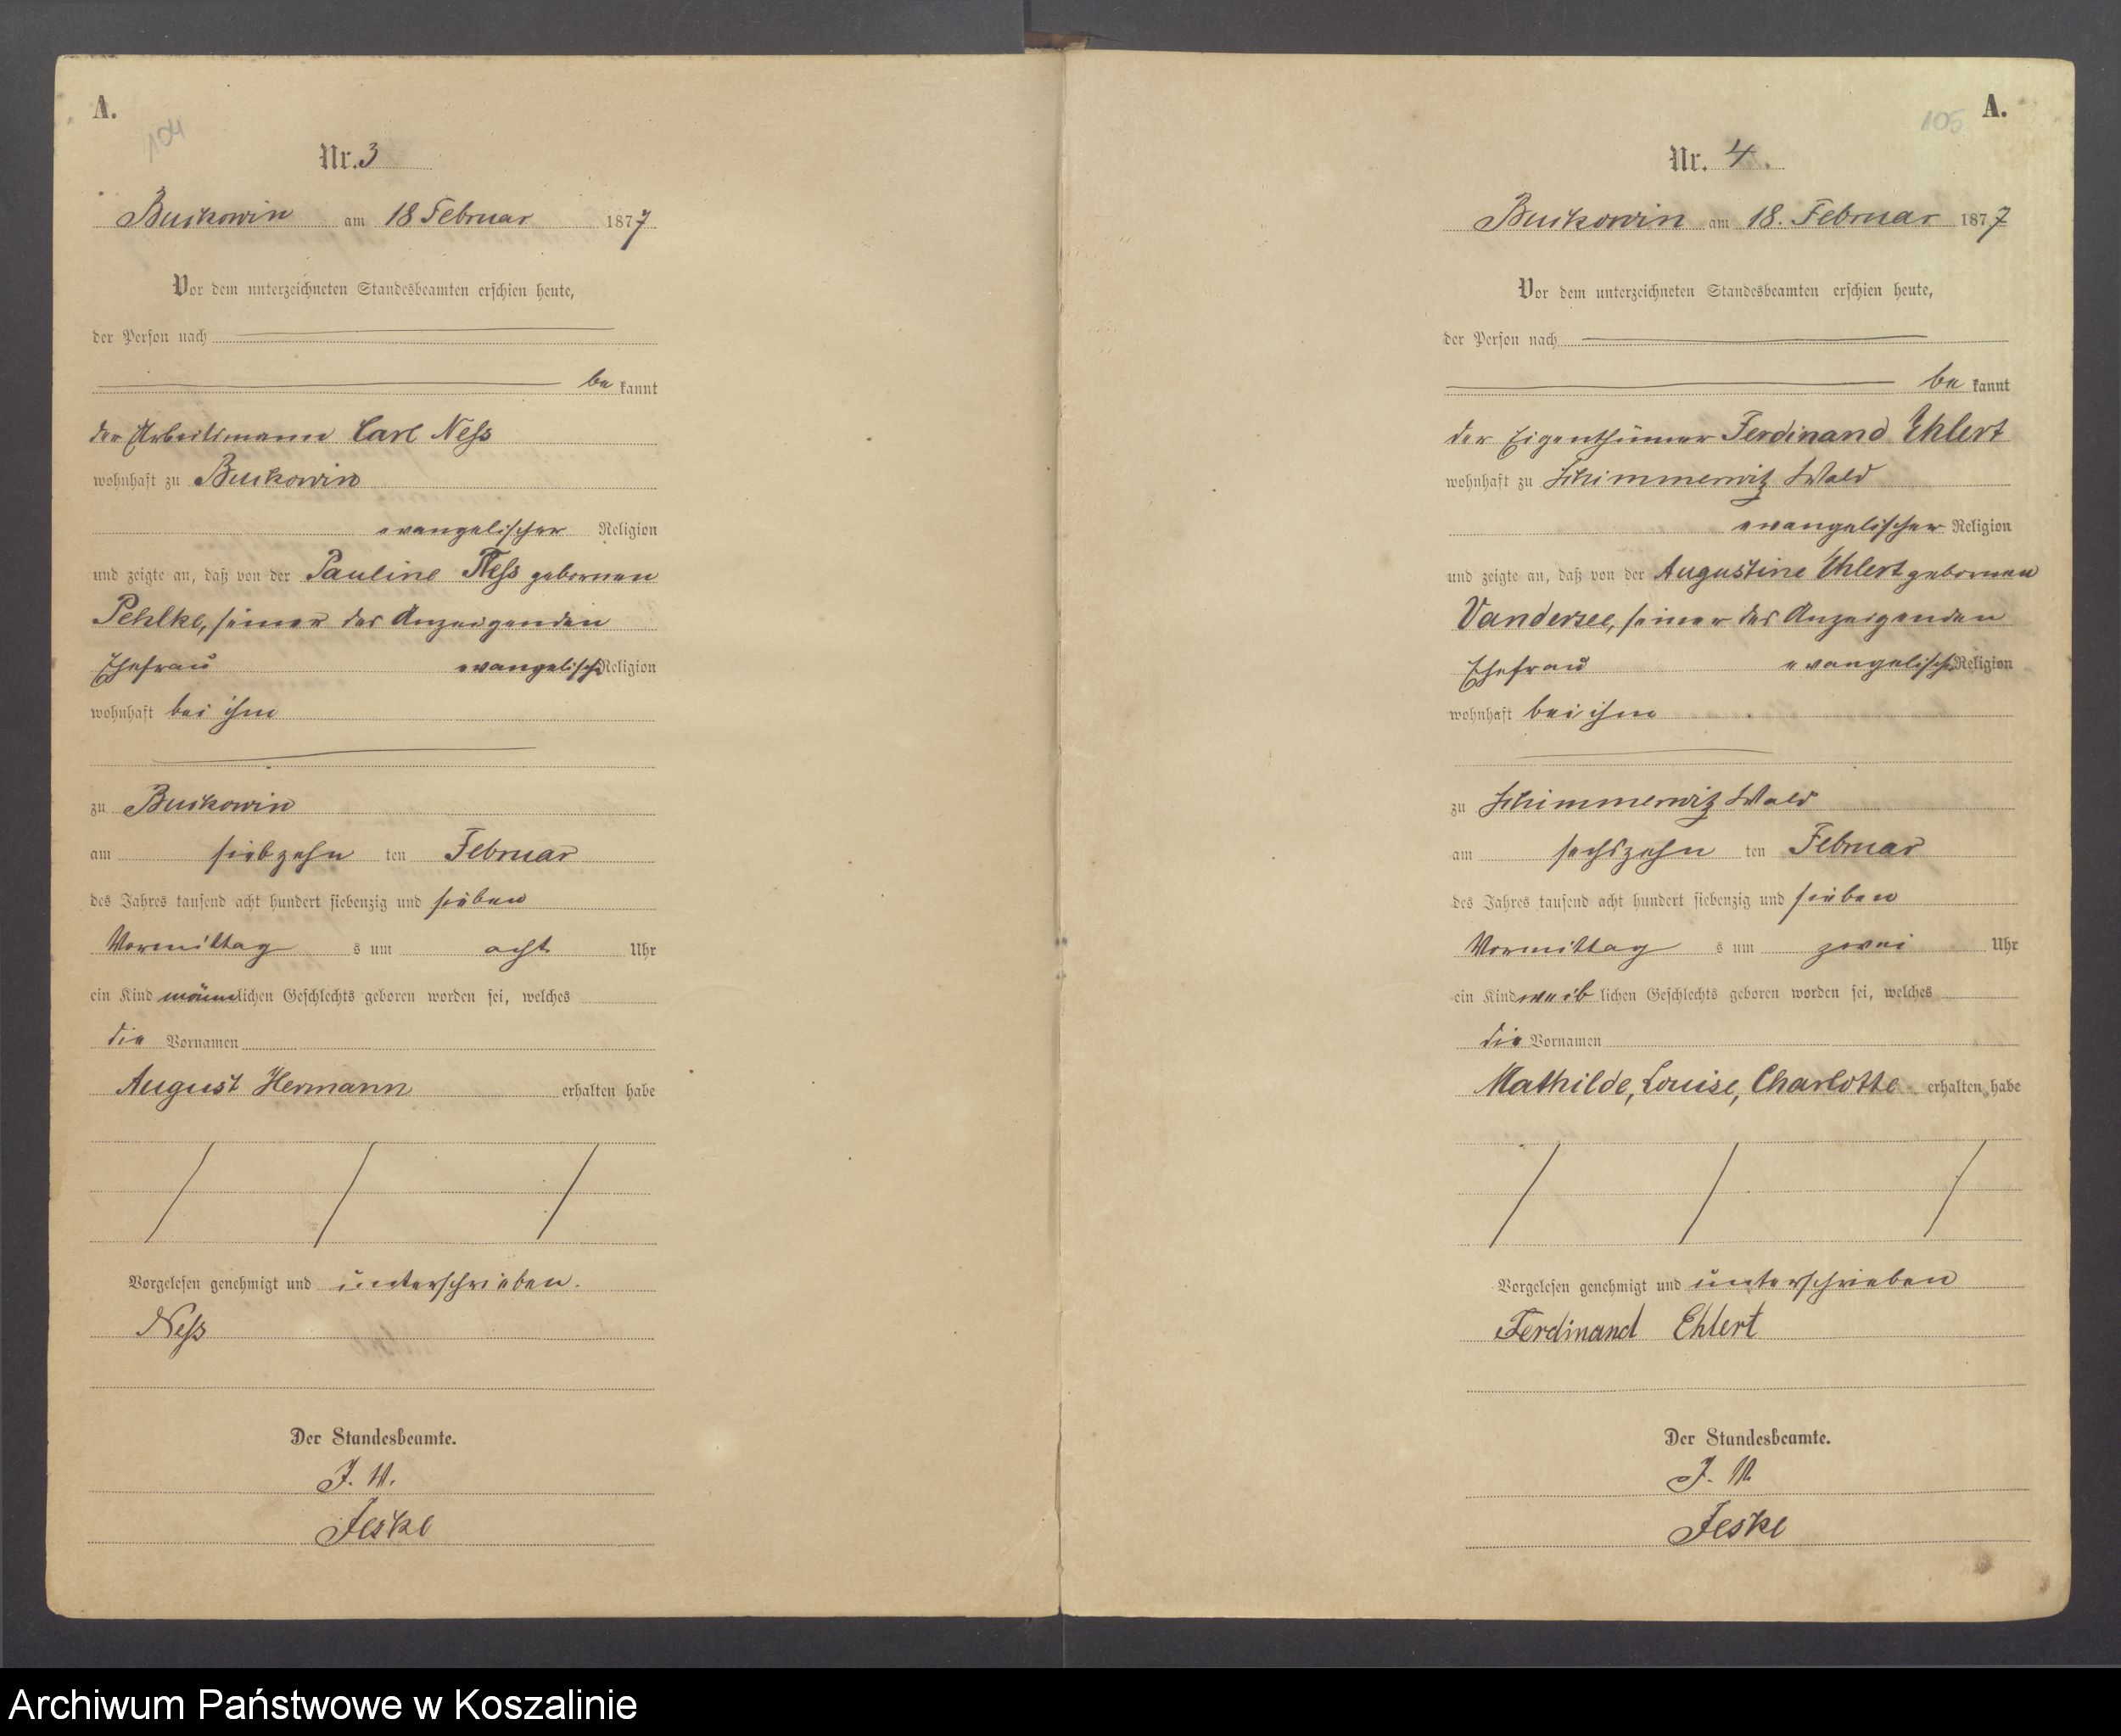 A.
104
Nr. 3
Buckowin am 18 Februar 1877
Vor dem unterzeichneten Standesbeamten erschien heute,
der Person nach
be kannt
der Arbeitsmann Carl Neß
wohnhaft zu Buckowin
evangelischer Religion
und zeigte an, daß von der Pauline Neß gebornen
Pehlke, seiner des Anzeigenden
Ehefrau evangelisch Religion
wohnhaft bei ihm
zu Buckowin
am siebzehn ten Februar
des Jahres tausend acht hundert siebenzig und sieben
Vormittag s um acht Uhr
ein Kind männlichen Geschlechts geboren worden sei, welches
die Vornamen
August Hermann erhalten habe
Vorgelesen genehmigt und unterschrieben.
Neß
Der Standesbeamte.
J. V.
Jeske
105
A.
Nr. 4.
Buckowin am 18. Februar 1877
Vor dem unterzeichneten Standesbeamten erschien heute,
der Person nach
be kannt
der Eigenthümer Ferdinand Ehlert
wohnhaft zu Schimmerwitz Wald
evangelischer Religion
und zeigte an, daß von der Augustine Ehlert gebornen
Vandersee, seiner des Anzeigenden
Ehefrau evangelisch Religion
wohnhaft bei ihm
zu Schimmerwitz Wald
am sechszehn ten Februar
des Jahres tausend acht hundert siebenzig und sieben
Vormittag s um zwei Uhr
ein Kind weib lichen Geschlechts geboren worden sei, welches
die Vornamen
Mathilde, Louise, Charlotte erhalten habe
Vorgelesen genehmigt und unterschrieben
Ferdinand Ehlert
Der Standesbeamte.
J. V.
Jeske
Archiwum Państwowe w Koszalinie